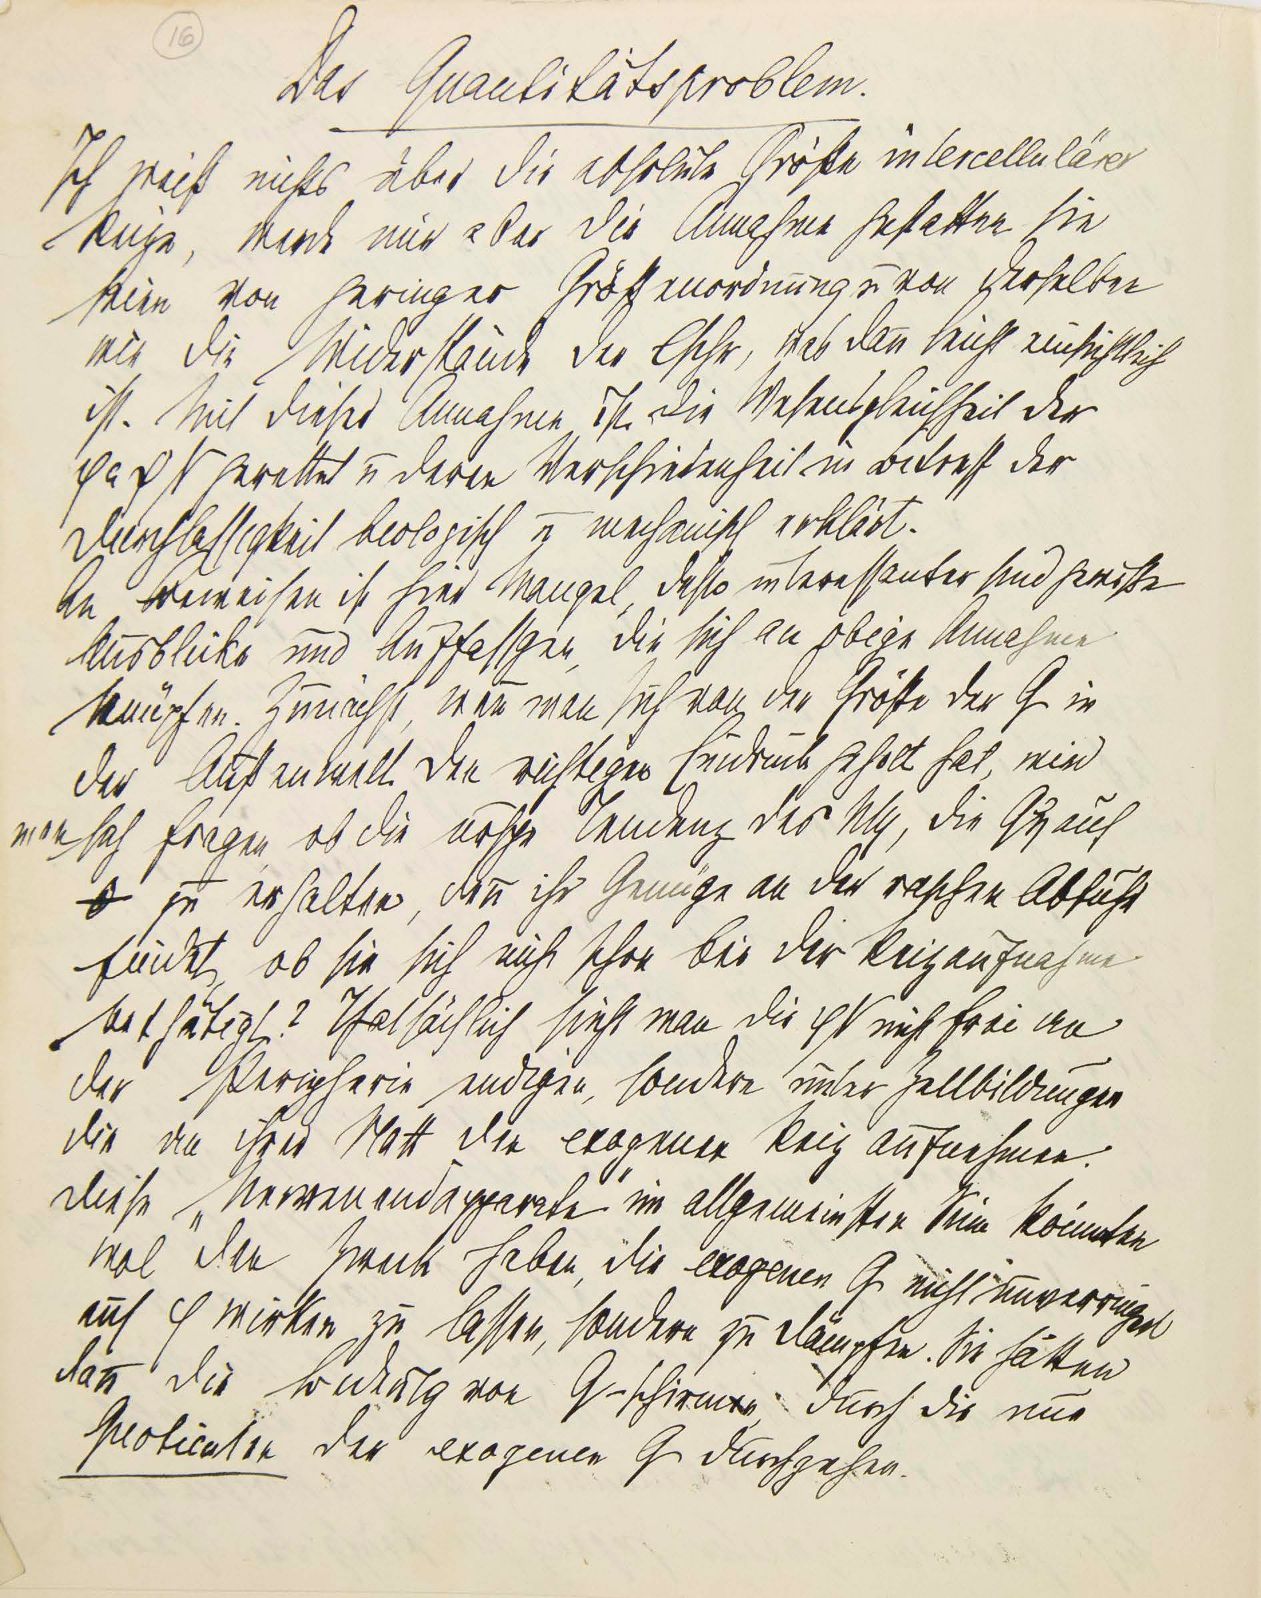 16
Das Quantitätsproblem.
Ich weiß nichts über die absolute Größe intercellulärer
Reize, werde mir aber die Annahme gestatten sie
seien von geringer Größenordnung u von derselben
wie die Widerstände der Cschr, was dan leicht einsichtlich
ist. Mit dieser Annahme ist die Wesensgleichheit der
φ u ψ N gerettet u deren Verschiedenheit in betreff der
Durchlässigkeit biologisch u mechanisch erklärt.
An Beweisen ist hier Mangel, desto interessanter sind gewiße
Ausblicke und Auffassgen, die sich an obige Annahme
knüpfen. Zunächst, wen man sich von der Größe der Q in
der Außenwelt den richtigen Eindruck geholt hat, wird
man sich fragen ob die urspr Tendenz des NS, die Qη auf
0 zu erhalten, den ihr Genüge an der raschen Abfuhr
findet, ob sie sich nicht schon bei der Reizaufnahme
bethätigt? Thatsächlich sieht man die φN nicht frei an
der Peripherie endigen, sondern unter Zellbildungen
die an ihrer Statt den exogenen Reiz aufnehmen.
Diese „Nervenendapparate" im allgemeinsten Sinn könnten
wol den Zweck haben, die exogenen Q nicht unverringert
auf φ wirken zu lassen, sondern zu dämpfen. Sie hätten
dan die Bedeutg von Q-schirmen, durch die nur
Quotienten der exogenen Q durchgehen.